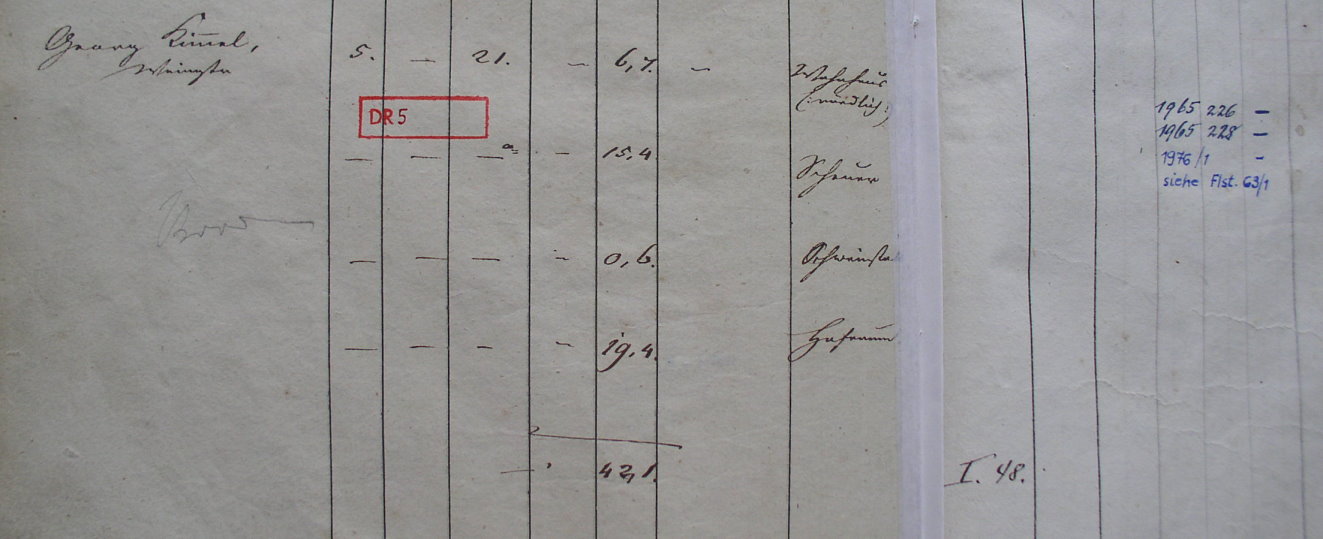 Georg Kimmel,
5. — 21. — 6,7. —
Wohnhaus
(: nördlich :)
DR 5
— — — — 15,4
Scheuer
— — — — 0,6.
Schweinsta
— — — — 19,4.
Hofraum
— 42,1.
I. 48.
1965 226 —
1965 228 —
1976/1 -
siehe Flst. 63/1